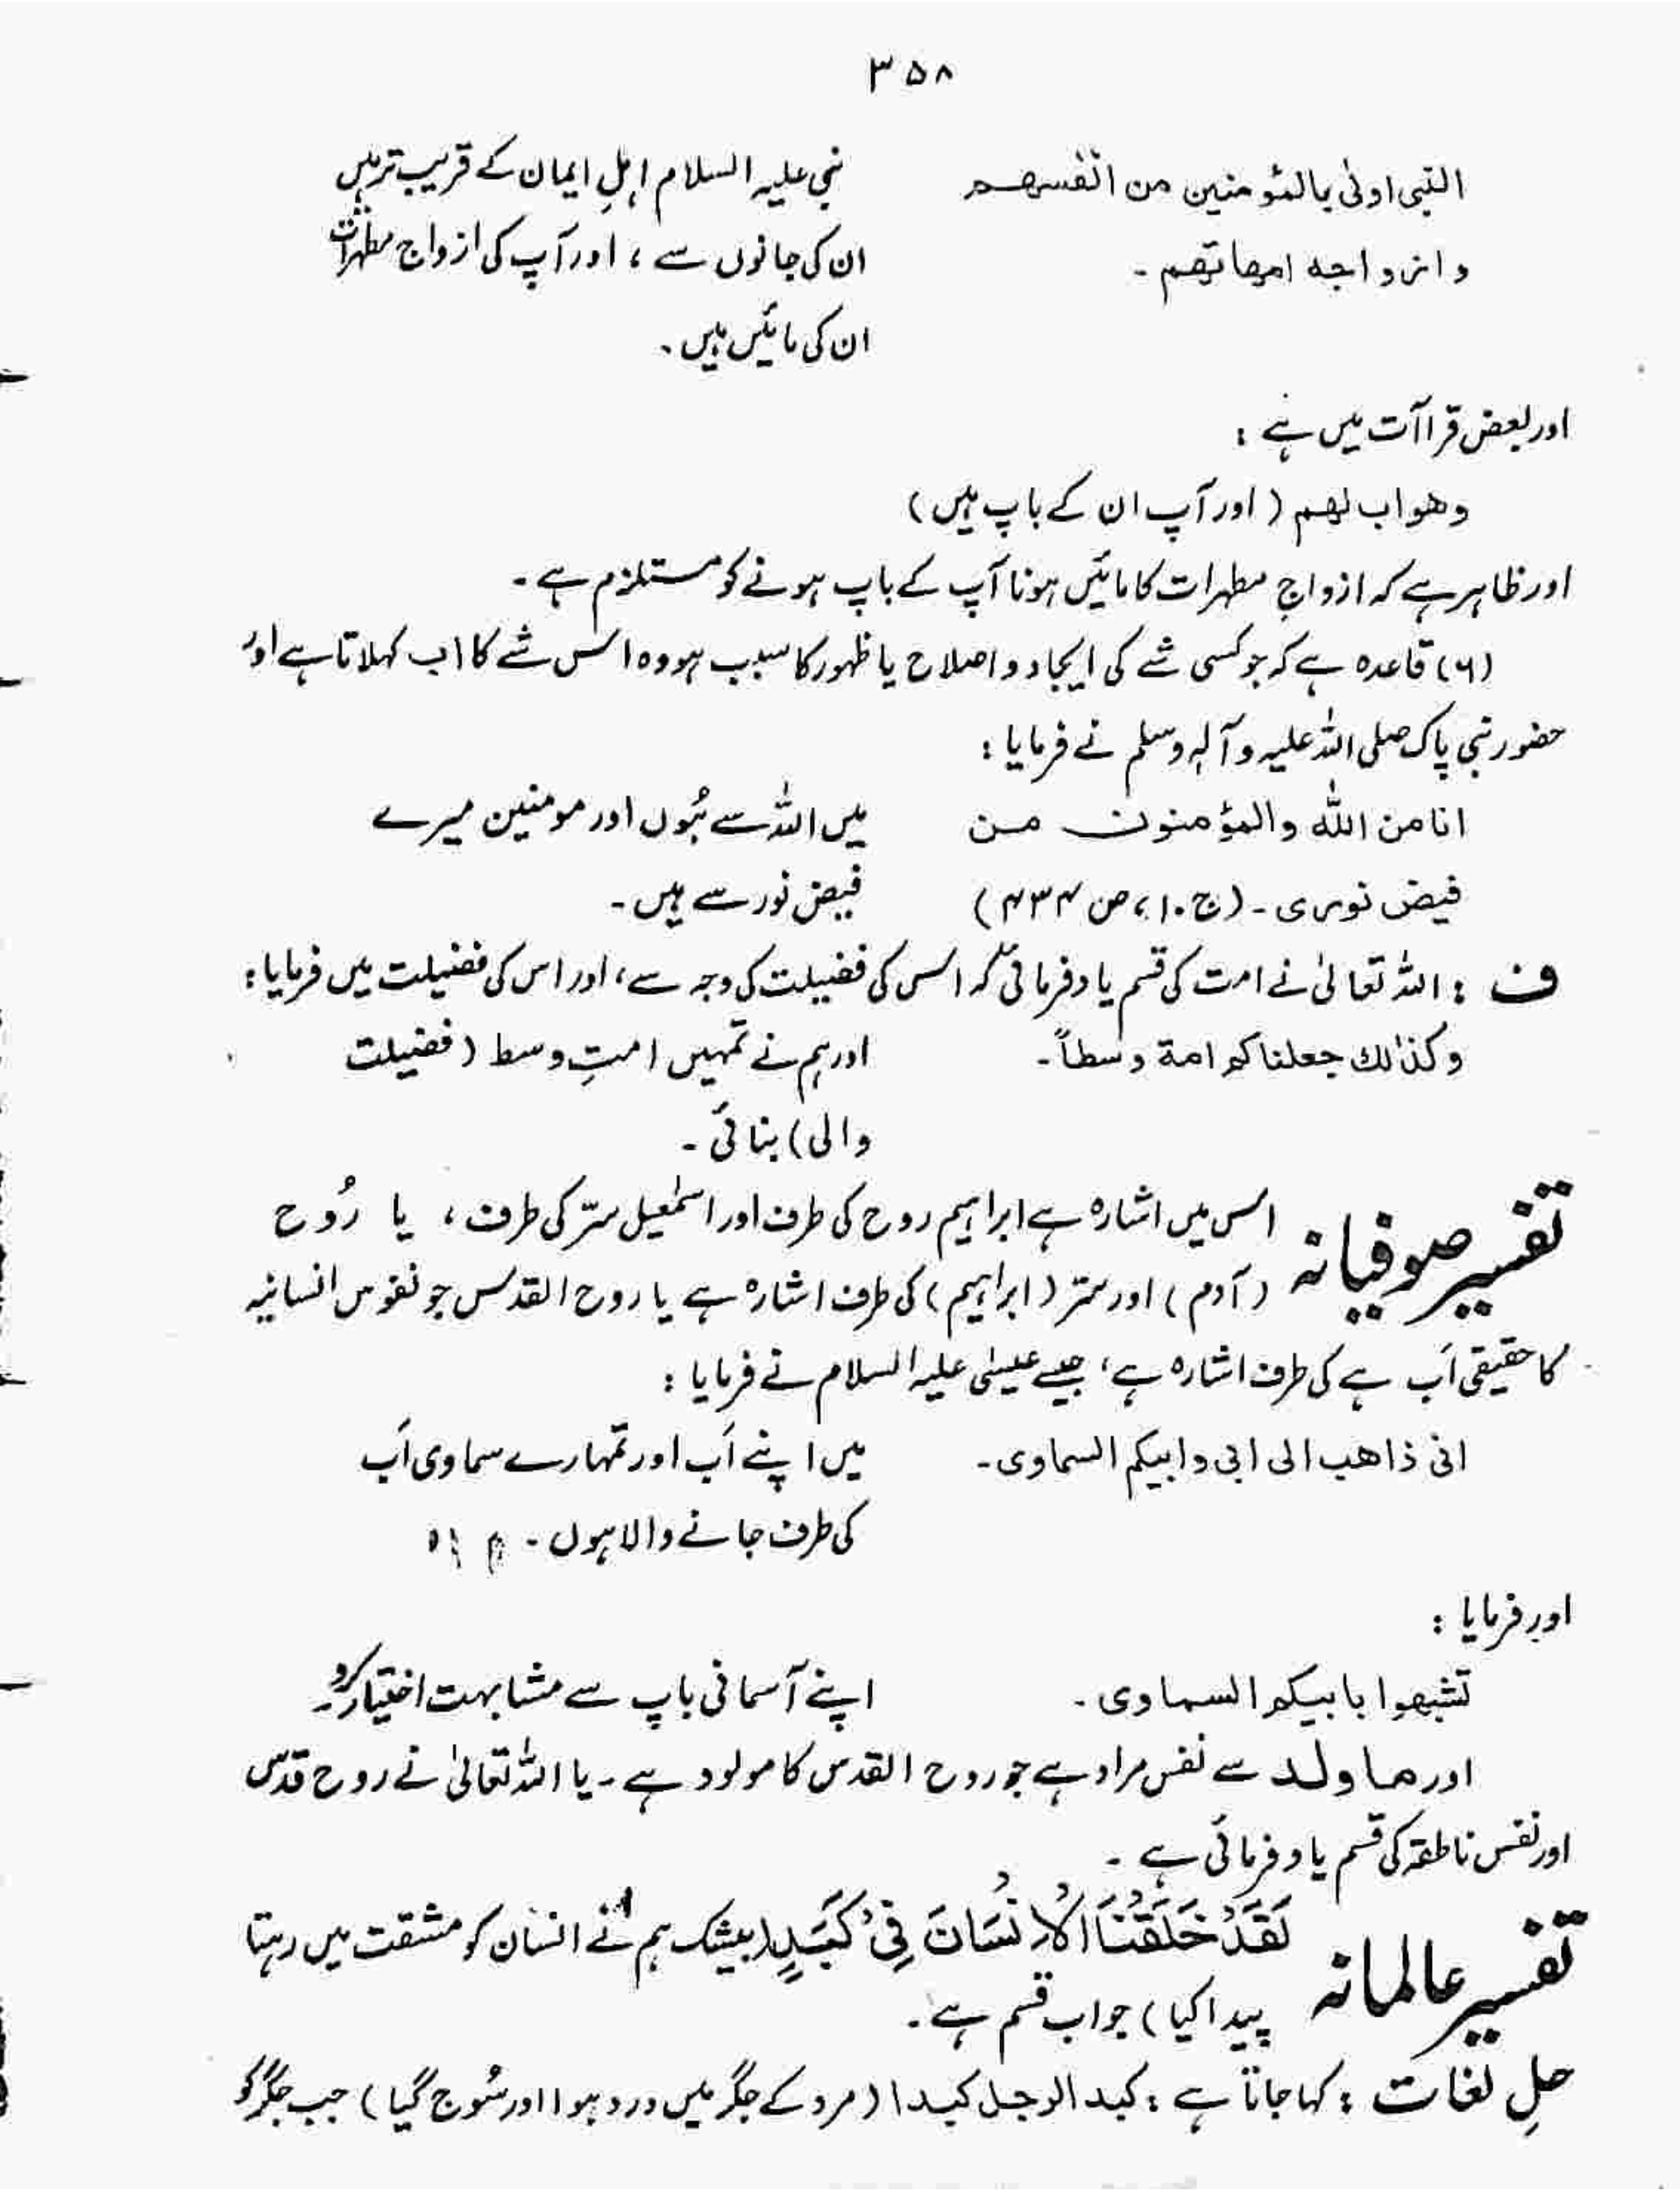 ٣٥٨
النبی اولیٰ بالمؤمنین من انفسھم نبی علیہ السلام اہلِ ایمان کے قریب تر ہیں
وازواجہ امھاتھم ۔ ان کی جانوں سے ، اور آپ کی ازواج مطہراتؓ
ان کی مائیں ہیں ۔
اور بعض قراآت میں ہے :
وھو اب لھم ( اور آپ ان کے باپ ہیں )
اور ظاہر ہے کہ ازواجِ مطہرات کا مائیں ہونا آپ کے باپ ہونے کو مستلزم ہے ۔
(٦) قاعدہ ہے کہ جو کسی شے کی ایجاد و اصلاح یا ظہور کا سبب ہو وہ اس شے کا اب کہلاتا ہے اور
حضور نبی پاک صلی اللہ علیہ وآلہ وسلم نے فرمایا :
انا من اللہ والمؤمنون من میں اللہ سے ہُوں اور مومنین میرے
فیض نوری ۔ (ج ١٠، ص ٤٣٤) فیض نور سے ہیں ۔
ف : اللہ تعالیٰ نے امت کی قسم یاد فرمائی کہ اس کی فضیلت کی وجہ سے ، اور اس کی فضیلت میں فرمایا :
وکذالك جعلناکم امة وسطاً ۔ اور ہم نے تمہیں امتِ وسط ( فضیلت
والی ) بنائی ۔
تفسیر صوفیانہ اس میں اشارہ ہے ابراہیم روح کی طرف اور اسمٰعیل سرّ کی طرف ، یا رُوح
( آدم ) اور سرّ ( ابراہیم ) کی طرف اشارہ ہے یا روح القدس جو نفوس انسانیہ
کا حقیقی اَب ہے کی طرف اشارہ ہے ، جیسے عیسٰی علیہ السلام نے فرمایا :
انی ذاھب الی ابی وابیکم السماوی ۔ میں اپنے اَب اور تمہارے سماوی اَب
کی طرف جانے والا ہوں ۔
اور فرمایا :
تشبھوا بابیکم السماوی ۔ اپنے آسمانی باپ سے مشابہت اختیار کرو ۔
اور ما ولد سے نفس مراد ہے جو روح القدس کا مولود ہے ۔ یا اللہ تعالیٰ نے روح قدس
اور نفس ناطقہ کی قسم یاد فرمائی ہے ۔
تفسیر عالمانہ لَقَدْ خَلَقْنَا الْاِنْسَانَ فِیْ کَبَدٍ ( بیشک ہم نے انسان کو مشقت میں رہتا
پیدا کیا ) جواب قسم ہے ۔
حلِ لغات : کہا جاتا ہے : کبد الرجل کبدا ( مرد کے جگر میں درد ہوا اور سُوج گیا ) جب جگر کو